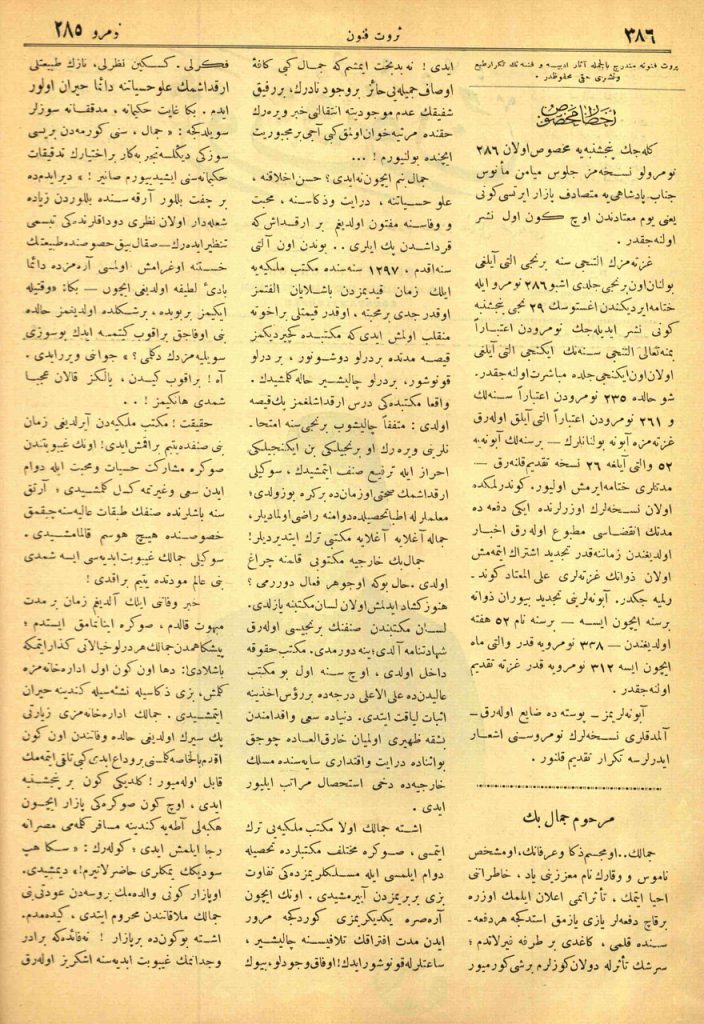 ٣٨٦
ثروت فنون
نومرو ٢٨٥
ثروت فنونه مندرج بالجمله آثار ادبيه و فنيه نك تكرار طبع
و نشرى حقى محفوظدر .
اخطار مخصوص
كله جك پنجشنبه يه مخصوص اولان ٢٨٦
نومرولو نسخه مز جلوس ميامن مأنوس
جناب پادشاهى يه متصادف بازار ايرتسى كونى
يعنى يوم معتاددن اوچ كون اول نشر
اولنه جقدر .
غزته مزك التنجى سنه برنجى التى آيلغى
بولنان اون برنجى جلدى اشبو ٢٨٦ نومرو ايله
ختامه ايرديكندن اغستوسك ٢٩ نجى پنجشنبه
كونى نشر ايديله جك نومرودن اعتباراً
بمنه تعالى التنجى سنه نك ايكنجى التى آيلغى
اولان اون ايكنجى جلده مباشرت اولنه جقدر .
شو حالده ٢٣٥ نومرودن اعتباراً سنه لك
و ٢٦١ نومرودن اعتباراً التى آيلق اوله رق
غزته مزه آبونه بولنانلرك — برسنه لك آبونه يه
٥٢ والتى آيلغه ٢٦ نسخه تقديم قلنه رق —
مدتلرى ختامه ايرمش اوليور . كوندرلمكده
اولان نسخه لرك اوزرلرنده ايكى دفعه ده
مدتك انقضاسى مطبوع اوله رق اخبار
اولديغندن زماننه قدر تجديد اشتراك ايتمه مش
اولان ذواتك غزته لرى على المعتاد كوند ـ
ريلميه جكدر. آبونه لرينى تجديد بيوران ذواته
برسنه ايچون ايسه — برسنه تام ٥٢ هفته
اولديغندن — ٣٣٨ نومرويه قدر والتى ماه
ايچون ايسه ٣١٢ نومرويه قدر غزته تقديم
اولنه جقدر .
آبونه لريمز — پوسته ده ضايع اوله رق ـ
آلمدقلرى نسخه لرك نومروسنى اشعار
ايدرلرسه تكرار تقديم قلنور .
مرحوم جمال بك
جمالك.. او مجسم ذكا وعرفانك، او مشخص
ناموس و وقارك نام معززينى ياد ، خاطراتنى
احيا ايتمك ، تأثراتمى اعلان ايلمك اوزره
برقاچ دفعه لر يازى يازمق استدكجه هر دفعه ـ
سنده قلمى ، كاغدى بر طرفه فيرلاتدم ؛
سرشك تأثرله دولان كوزلرم برشى كورميور
ايدى ! نه بدبخت ايمشم كه جمال كبى كافهٔ
اوصاف جميله يى حائز بر وجود نادرك، بر رفيق
شفيقك عدم موجوديته انتقالنى خبر ويره رك
حقنده مرثيه خوان اولمق كبى آجى بر مجبوريت
ايچنده بولنيورم ! ...
جمال بنم ايچون نه ايدى؟ حسن اخلاقنه ،
علو حسياتنه ، درايت و ذكاسنه ، محبت
و وفاسنه مفتون اولديغم بر ارقداش كه
قرداشدن پك ايلرى . . بوندن اون آلتى
سنه اقدم ، ١٢٩٧ سنه سنده مكتب ملكيه يه
ايلك زمان قيدمزدن باشلايان الفتمز
اوقدر جدى بر محبته ، اوقدر قيمتلى بر اخوته
منقلب اولمش ايدى كه مكتبده كچيرديكمز
قيصه مدتده بردرلو دوشونور ، بر درلو
قونوشور، بردرلو چاليشير حاله كلمشيدك .
واقعا مكتبده كى درس ارقداشلغمز پك قيصه
اولدى : متفقاً چاليشوب برنجى سنه امتحا ـ
نلرينى ويره رك او برنجيلكى بن ايكنجيلكى
احراز ايله ترفيع صنف ايتمشيدك ، سوكيلى
ارقداشمك صحتى اوزمان ده بر كره بوزولدى؛
معلملر له اطبا تحصيلده دوامنه راضى اولماديلر،
جماله آغلايه آغلايه مكتبى ترك ايتديرديلر!
جمال بك خارجيه مكتوبى قلمنه چراغ
اولدى . حال بوكه اوجوهر فعال دوررمى ؟
هنوز كشاد ايدلمش اولان لسان مكتبنه يازلدى.
لسان مكتبندن صنفنك برنجيسى اوله رق
شهادتنامه آلدى؛ ينه دورمدى. مكتب حقوقه
داخل اولدى ، اوچ سنه اول بو مكتب
عاليدن ده على الاعلى درجه ده بر رؤس اخذينه
اثبات لياقت ايتدى. دنياده سعى و اقدامندن
بشقه ظهيرى اوليان خارق العاده چوجق
بو اثناده درايت و اقتدارى سايه سنده مسلك
خارجيه ده دخى استحصال مراتب ايليور
ايدى .
اشته جمالك اولا مكتب ملكيه يى ترك
ايتمسى ، صوكره مختلف مكتبلرده تحصيله
دوام ايلمسى ايله مسلكلريمزده كى تفاوت
بزى بربريمزدن آييرمشيدى . اونك ايچون
آره صره يكديكريمزى كوردكجه مرور
ايدن مدت افتراقك تلافيسنه چاليشير ،
ساعتلر له قونوشور ايدك! او فاق وجودلو، بيوك
فكرلى. كسكين نظرلى، نازك طبيعتلى
ارقداشمك علو حسياتنه دائما حيران اولور
ايدم . بكا غايت حكيمانه ، مدققانه سوزلر
سويلدكجه : « جمال ، سنى كورمه دن بريسى
سوزكى ديكلسه تجربه كار بر اختيارك تدقيقات
حكيمانه سنى ايشيديورم صانير! » دير ايدم ده
بر جفت بللور آرقه سنده بللوردن زياده
شعله دار اولان نظرى دوداقلرنده كى تبسمى
تنظير ايده رك — صقال بيق حصوصنده طبيعتك
خستنه اوغرامش اولمسى آره مزده دائما
بادئ لطيفه اولديغى ايچون — بكا : « وقتيله
ايكيمز بربويده ، برشكلده اولديغمز حالده
بنى اوفاجق براقوب كيتمسه ايدك بوسوزى
سويليه مزدك دكلمى؟ » جوابنى ويررايدى .
آه ! براقوب كيدن ، يالكز قالان عجبا
شمدى هانكيمز ! . .
حقيقت ! مكتب ملكيه دن آيرلديغى زمان
بنى صنفده يتيم براقمش ايدى! اونك غيبوبتندن
صوكره مشاركت حسيات و محبت ايله دوام
ايدن سعى و غيرتمه كسل كلمشيدى ؛ آرتق
سنه باشلرنده صنفك طبقات عاليه سنه چيقمق
خصوصنده هيچ هوسم قالمامشيدى .
سوكيلى جمالك غيبوبت ابديه سى ايسه شمدى
بنى عالم مودتده يتيم براقدى !
خبر وفاتنى ايلك آلديغم زمان بر مدت
مبهوت قالدم ، صوكره اينانمامق ايستدم ؛
پيشكاهمدن جمالك هر درلو خيالاتى كذار ايتمكه
باشلادى! : دها اون كون اول اداره خانه مزه
كلمش، بزى ذكاسيله نشئه سيله كندينه حيران
ايتمشيدى . جمالك اداره خانه مزى زيارتى
پك سيرك اولديغى حالده وفاتندن اون كون
اقدم بالخاصه كلمسنى بر وداع ابدى كبى تلقى ايتمه مك
قابل اوله ميور! كلديكى كون بر پنجشنبه
ايدى ، اوچ كون صوكره كى بازار ايچون
هكبه لى آطه يه كندينه مسافر كلمه مى مصرانه
رجا ايلمش ايدى ؛ كوله رك : « سكا هپ
سوديكك يمكلرى حاضرلاتيرم! » ديمشيدى.
اوبازار كونى والده مك بروسه دن عودتى بنى
جمالك ملاقاتندن محروم ايتدى ، كيده مدم.
اشته بوكون ده بر بازار ! نه فائده كه برادر
وجدانمك غيبوبت ابديه سنه اشكريز اوله رق